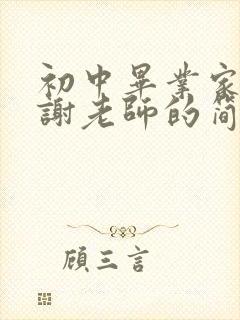 初中畢業家
謝老師的简
顧三言